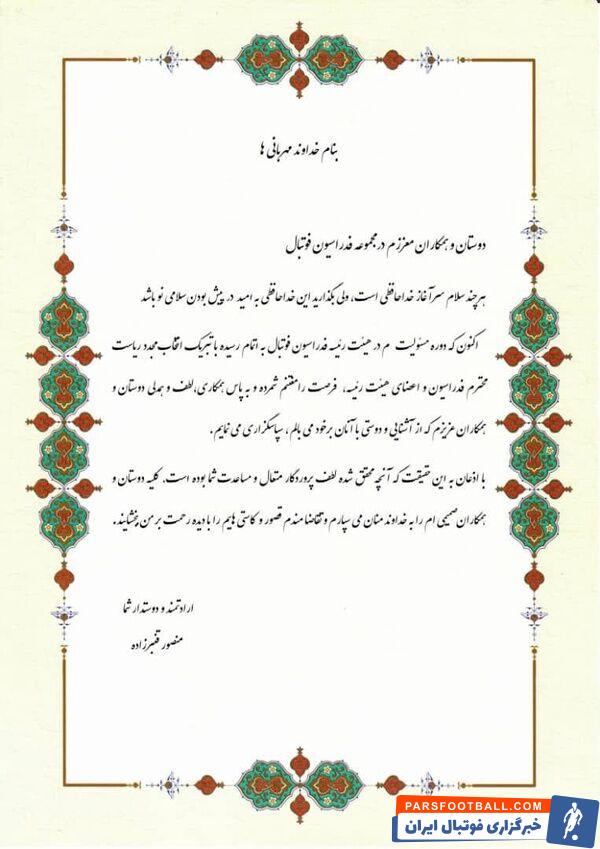 بنام خداوند مهربانی ها
دوستان و همکاران معززم در مجموعه فدراسیون فوتبال
هر چند سلام سرآغاز خداحافظی است، ولی بگذارید این خداحافظی به امید در پیش بودن سلامی نو باشد
اکنون که دوره مسئولیت م در هیئت رئیسه فدراسیون فوتبال به اتمام رسیده با تبریک انتخاب مجدد ریاست
محترم فدراسیون و اعضای هیئت رئیسه، فرصت را مغتنم شمرده و به پاس همکاری،لطف و همدلی دوستان و
همکاران عزیزم که از آشنایی و دوستی با آنان برخود می بالم ، سپاسگزاری می نمایم.
با اذعان به این حقیقت که آنچه محقق شده لطف پروردگار متعال و مساعدت شما بوده است، کلیه دوستان و
همکاران صمیمی ام را به خداوند منان می سپارم و تقاضامندم قصور و کاستی هایم را با دیده رحمت بر من ببخشایند.
ارادتمند و دوستدار شما
منصور قنبرزاده
PARSFOOTBALL.COM
خبرگزاری فوتبال ایران